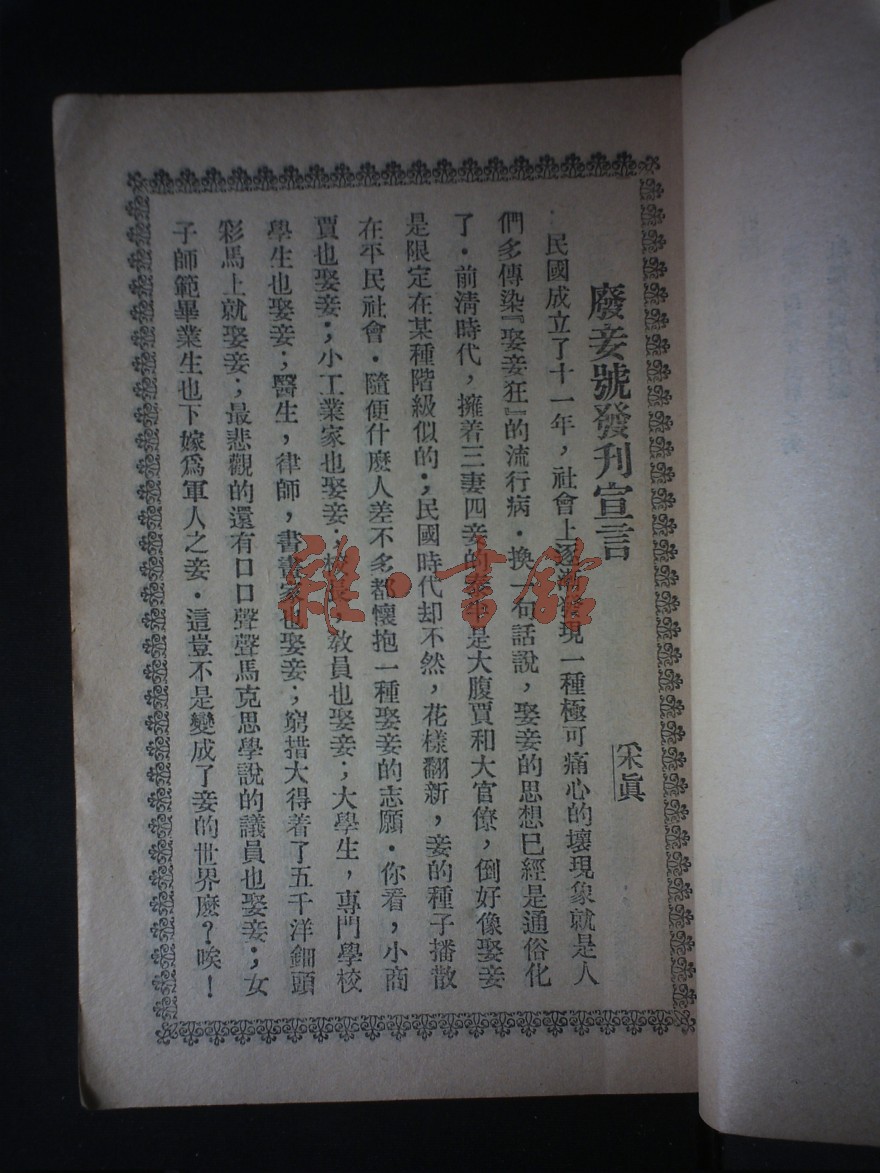 廢妾號發刋宣言
采眞
民國成立了十一年，社會上逐漸發現一種極可痛心的壞現象就是人
們多傳染『娶妾狂』的流行病．換一句話說，娶妾的思想已經是通俗化
了．前淸時代，擁着三妻四妾的是大腹賈和大官僚，倒好像娶妾
是限定在某種階級似的；民國時代却不然，花樣翻新，妾的種子播散
在平民社會．隨便什麽人差不多都懷抱一種娶妾的志願．你看，小商
賈也娶妾；小工業家也娶妾；校長，敎員也娶妾；大學生，專門學校
學生也娶妾；醫生，律師，書畫家也娶妾；窮措大得着了五千洋鈿頭
彩馬上就娶妾；最悲觀的還有口口聲聲馬克思學說的議員也娶妾；女
子師範畢業生也下嫁爲軍人之妾．這豈不是變成了妾的世界麽？唉！
雜·書館